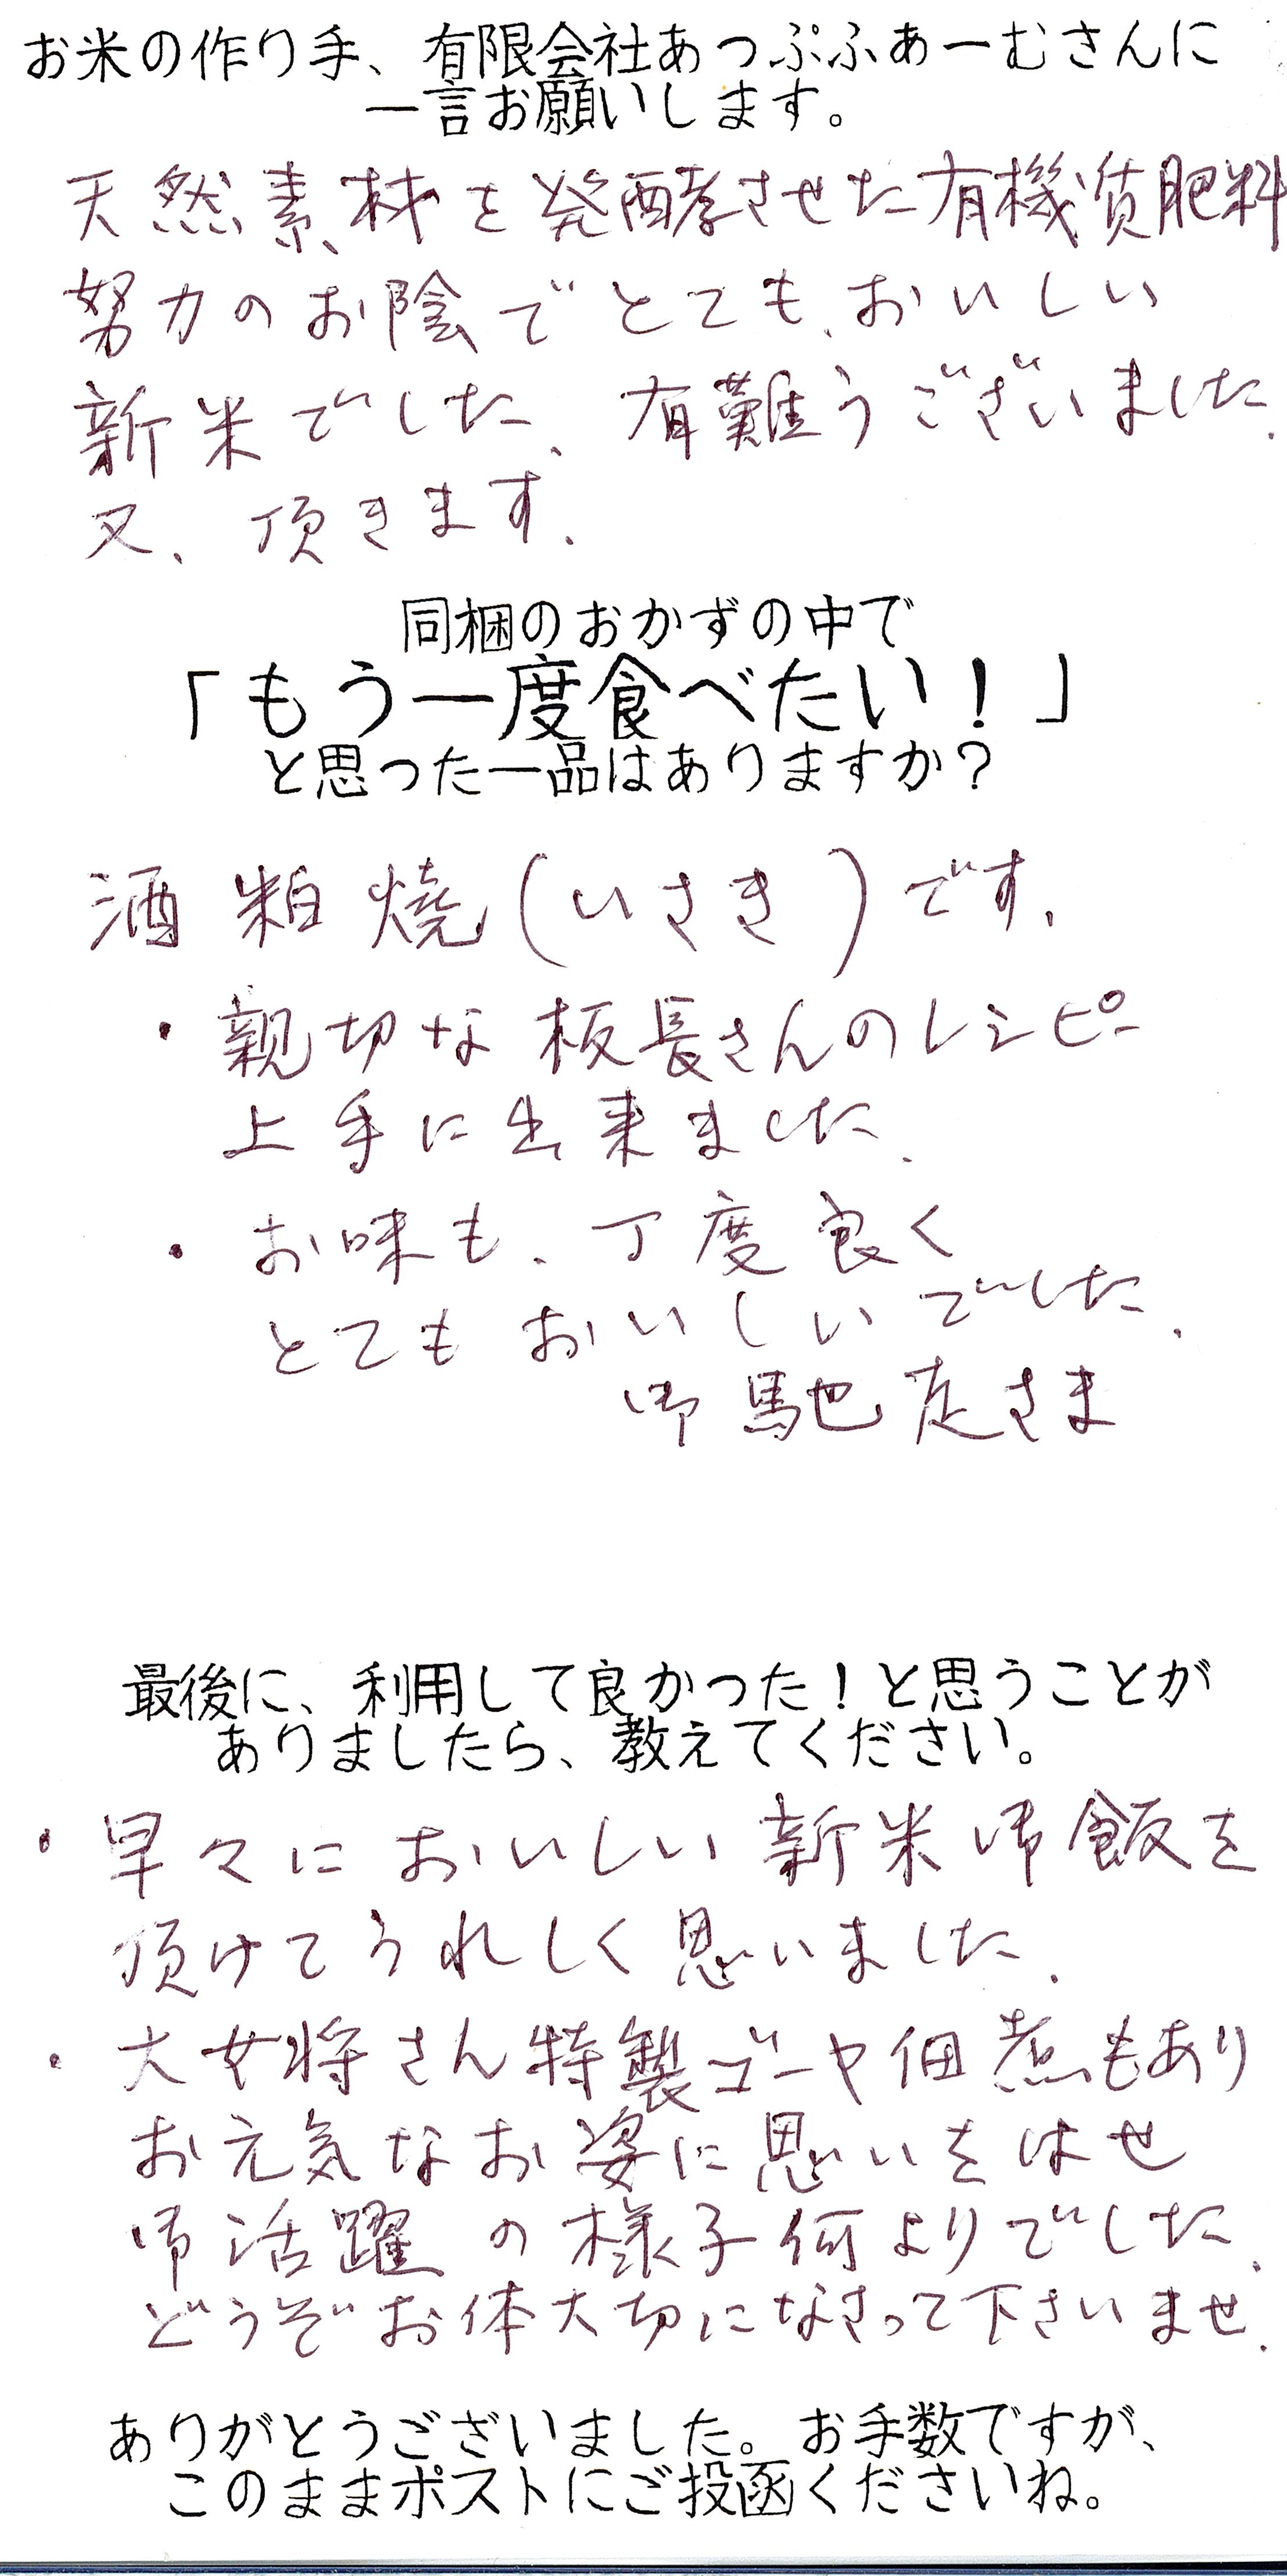 お米の作り手、有限会社あっぷふぁーむさんに
一言お願いします。
天然素材を発酵させた有機質肥料
努力のお陰でとても、おいしい
新米でした、有難うございました.
又、頂きます.
同梱のおかずの中で
「もう一度食べたい！」
と思った一品はありますか？
酒粕焼(いさき)です.
・親切な板長さんのレシピー
上手に出来ました.
・お味も、丁度良く
とてもおいしいでした.
御馳走さま
最後に、利用して良かった！と思うことが
ありましたら、教えてください。
・早々においしい新米御飯を
頂けてうれしく思いました.
・大女将さん特製ゴーヤ佃煮もあり
お元気なお姿に思いをはせ
御活躍の様子何よりでした.
どうぞお体大切になさって下さいませ.
ありがとうございました。お手数ですが、
このままポストにご投函くださいね。